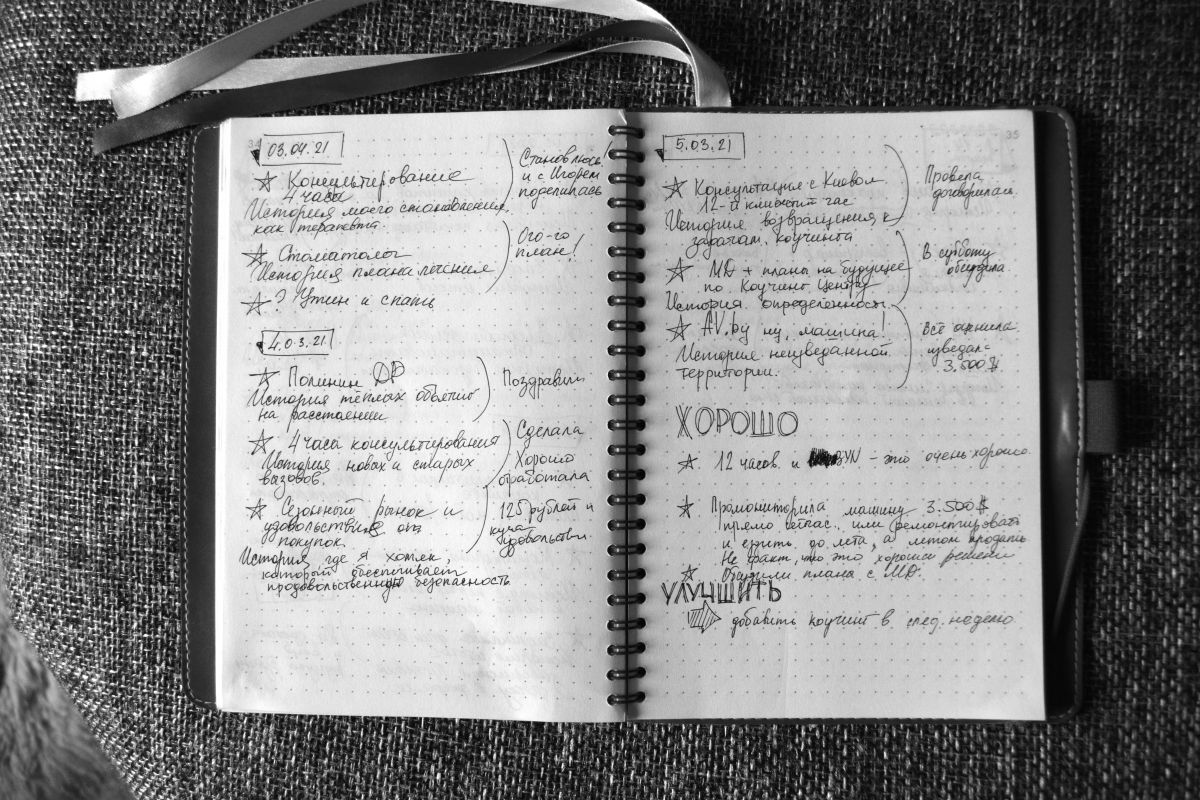 34
03.04.21
Консультирование
4 часа
История моего становления,
как терапевта.
Становлюсь!
и с Игорем
поделилась
Стоматолог
История плана лечения
Ого-го
план!
? Ужин и спать
4.03.21
Полинин ДР
История тёплых объятий
на расстоянии
Поздравили
4 часа консультирования
История новых и старых
вызовов.
Сделала
Хорошо
отработала
Сезонный рынок и
удовольствия от
покупок.
История где я хомяк,
который обеспечивает
продовольственную безопасность
125 рублей и
куча
удовольствия
35
5.03.21
Консультация с Киевом
12-й клиентский час
История возвращения к
задачам коучинга
Провела
договорилась
MD + планы на будущее
по Коучинг Центру
История определённости.
В субботу
обсудила.
AV.by ну, машина!
История неизведанной
территории.
Всё оценила.
изведала
3.500 $
ХОРОШО
12 часов и BYN – это очень хорошо
Промониторила машину 3.500 $
прямо сейчас.. или ремонтировать
и ездить до лета, а летом продать
Не факт, что это хорошее решение
Обсудили планы с MD.
УЛУЧШИТЬ
добавить коучинг в след. неделю